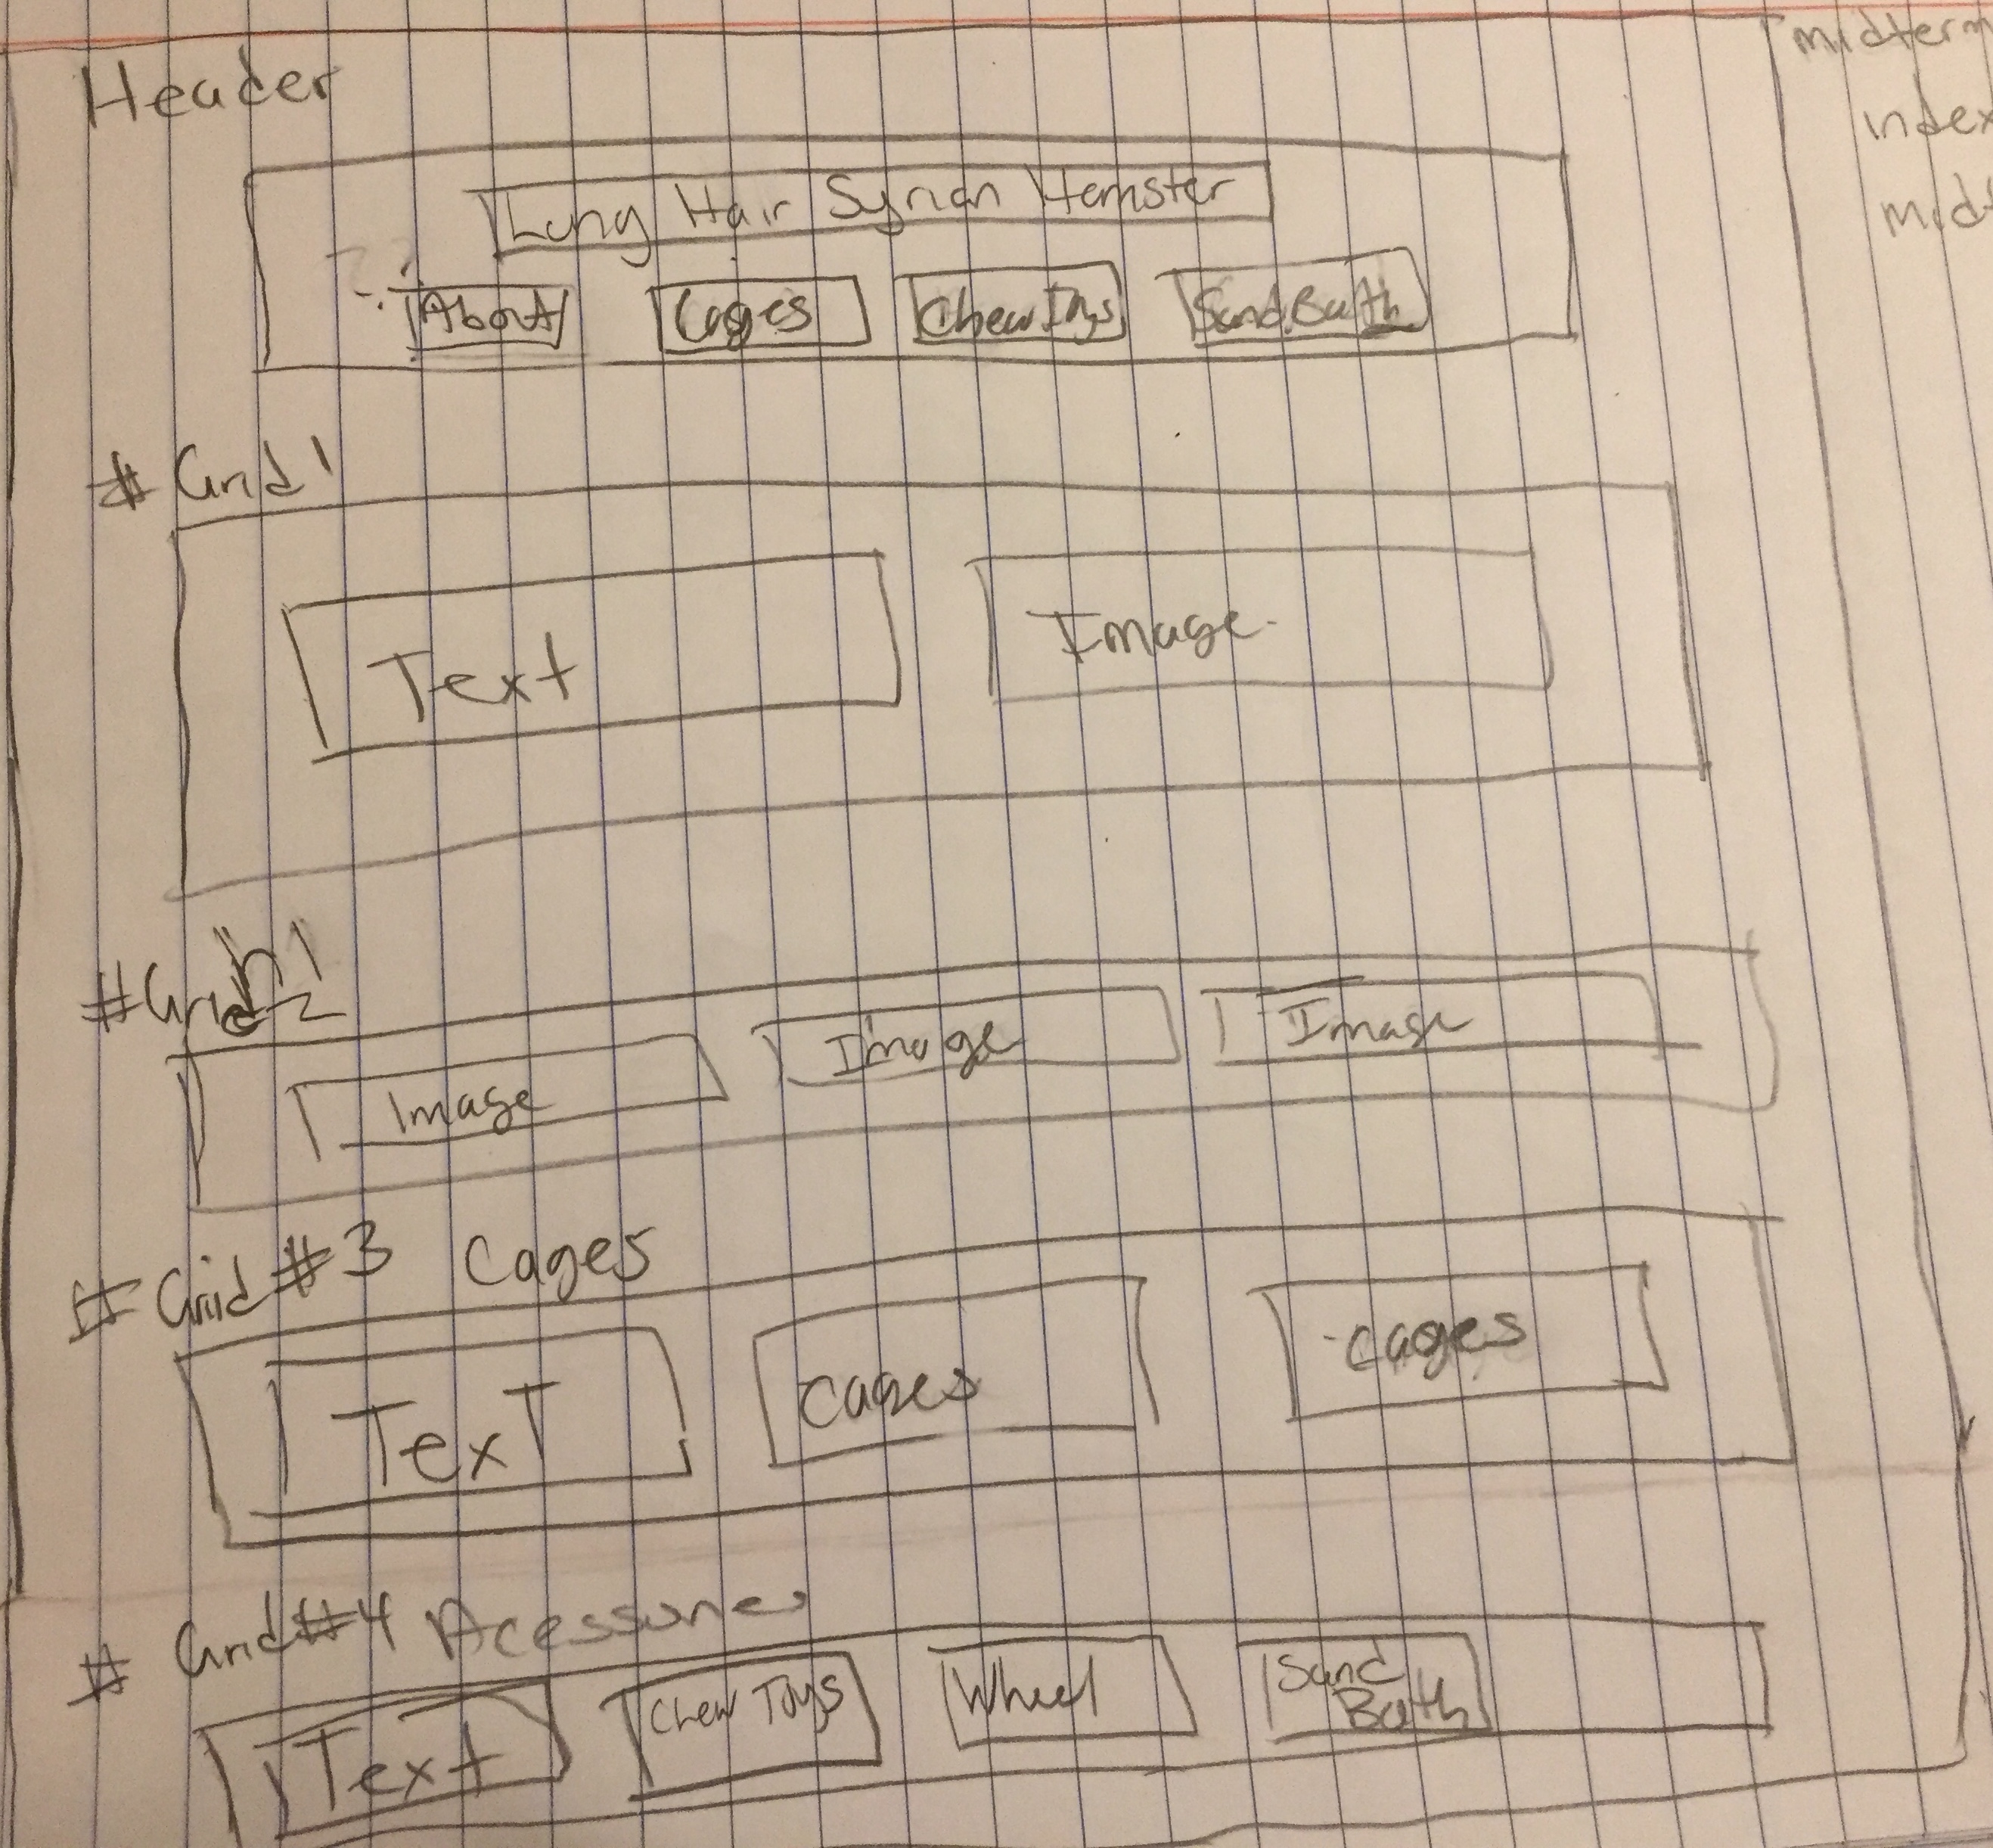 Header
midterm
index
Long Hair Syrian Hamster
About Cages Chew Toys Sand Bath
# Grid 1
Text Image
#Grid 2
h1
Image Image Image
# Grid #3 Cages
Text cages cages
# Grid #4 Acessories
Text Chew Toys Wheel Sand Bath